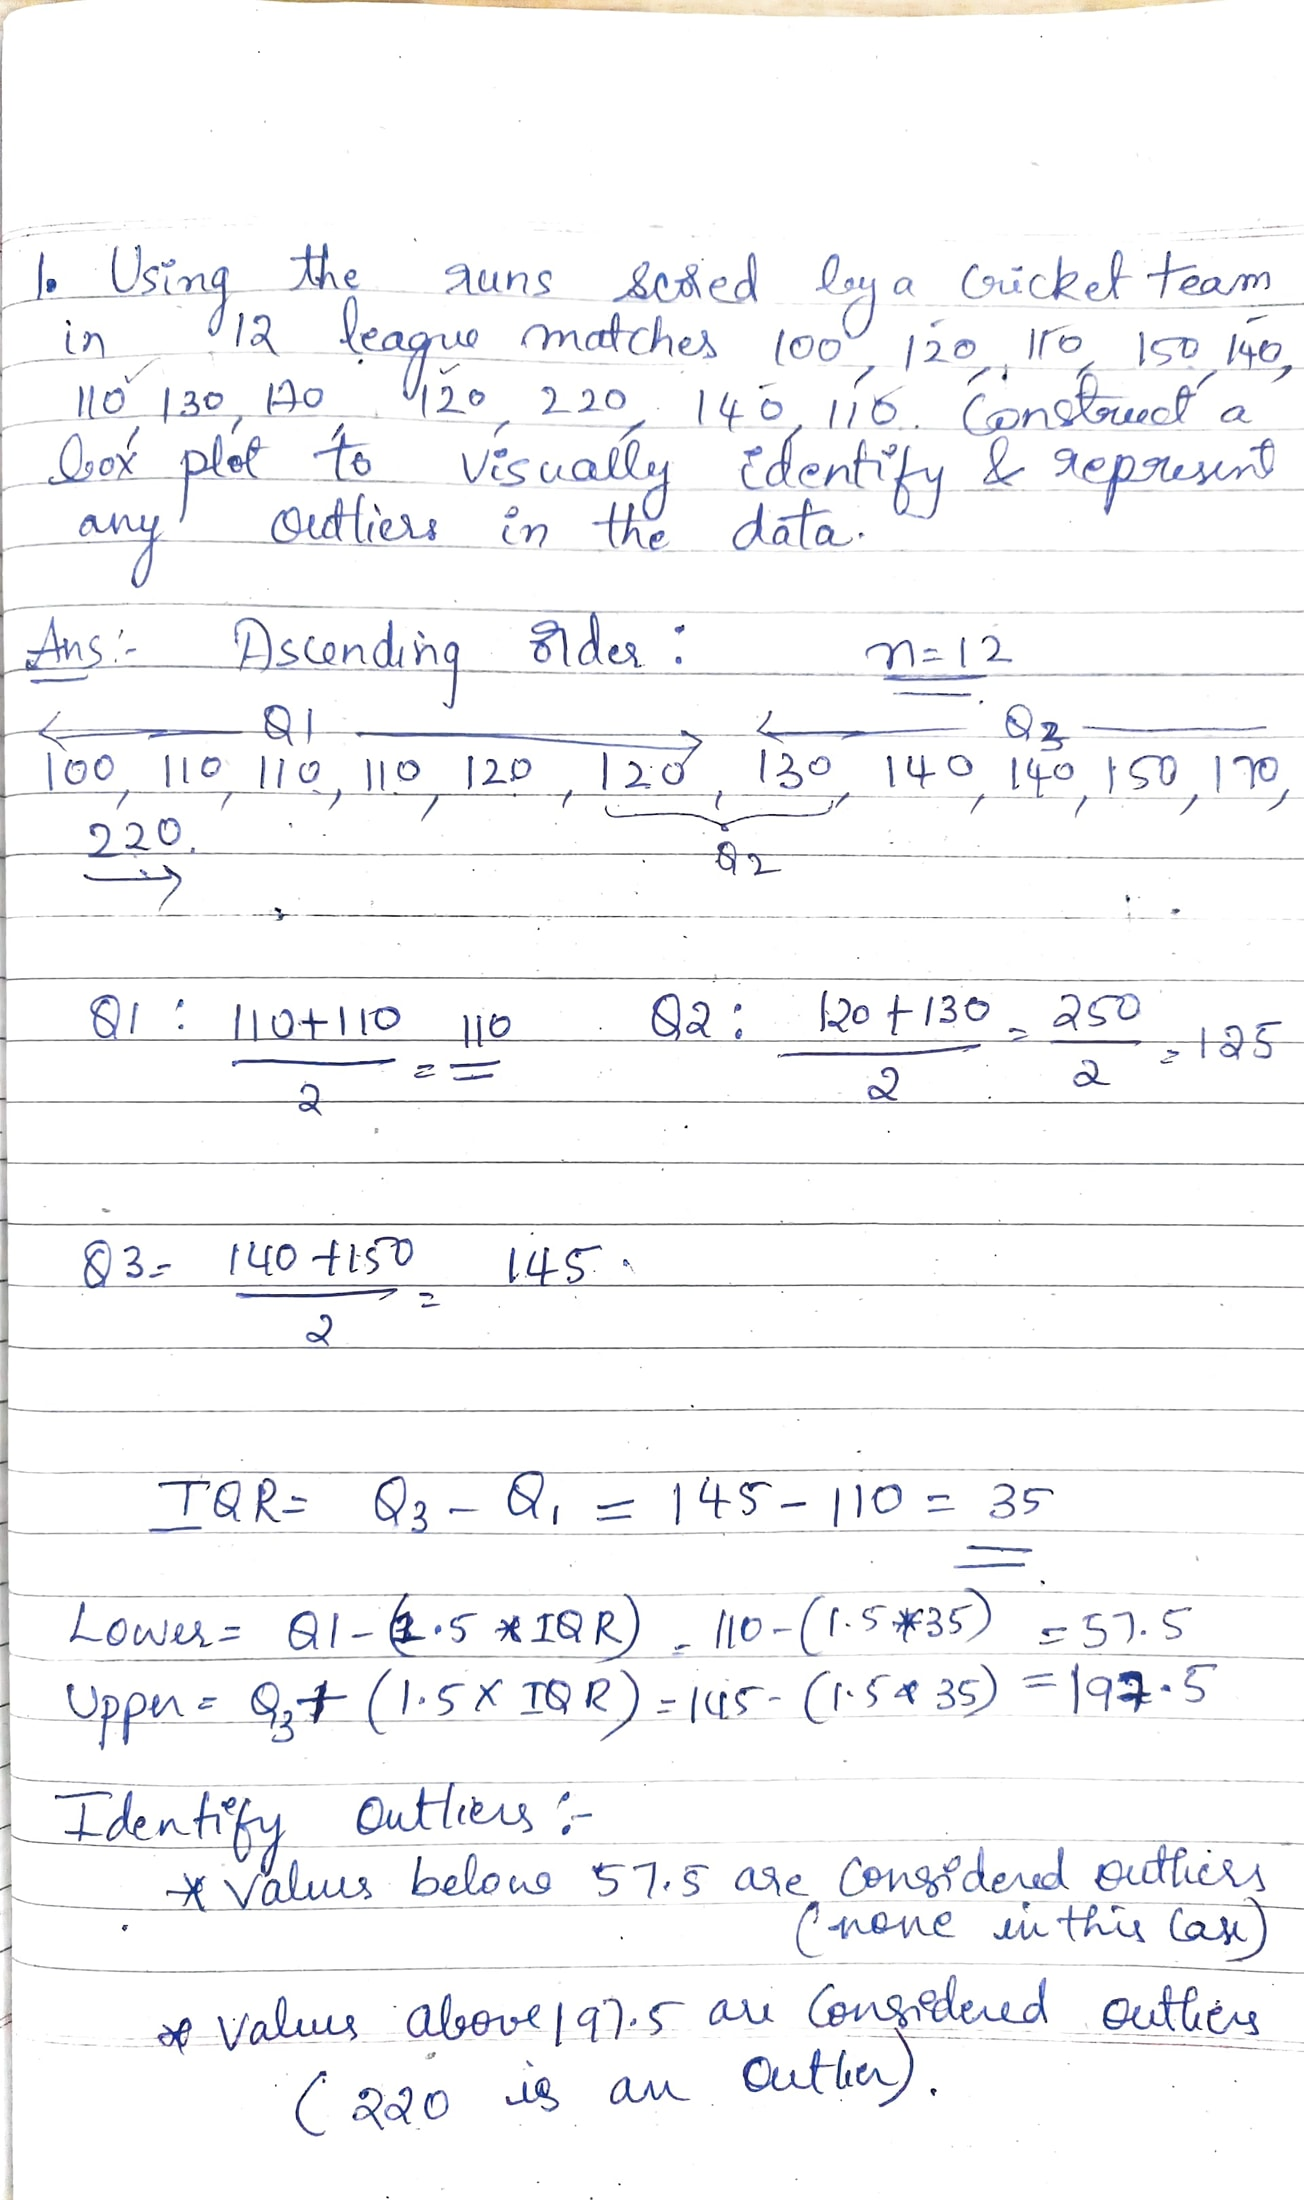 1. Using the runs scored by a Cricket team
in 12 league matches 100, 120, 110, 150, 140,
110, 130, 170, 120, 220, 140, 110. Construct a
box plot to visually identify & represent
any outliers in the data.
Ans:- Ascending order: n=12
Q1 Q3
100, 110, 110, 110, 120, 120, 130, 140, 140, 150, 170,
220.
Q2
Q1: (110+110)/2 = 110 Q2: (120+130)/2 = 250/2 = 125
Q3= (140+150)/2 = 145.
IQR= Q₃ - Q₁ = 145 - 110 = 35
Lower= Q1-(1.5*IQR) = 110-(1.5*35) =57.5
Upper= Q₃+ (1.5X IQR) = 145-(1.5*35) =197.5
Identify Outliers:-
* Values below 57.5 are Considered outliers
(none in this Case)
* Values above 197.5 are Considered outliers
(220 is an Outlier).